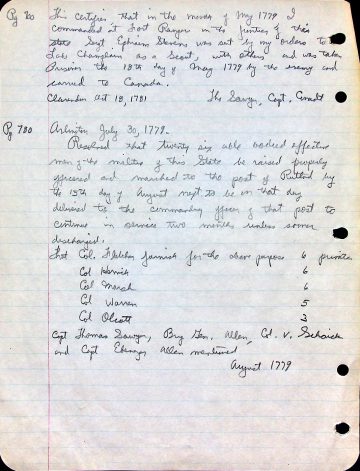 Pg 780 This certifies that in the month of May 1779 I
commanded at Fort Ranger in the frontiers of this
state Sergt Ephraim Stevens was sent by my orders to
Lake Champlain as a scout, with others and was taken
Prisoner the 18th day of May 1779 by the enemy and
carried to Canada.
Clarendon Oct 18, 1781 Tho Sawyer, Capt. Comdt
Pg 780 Arlington July 30, 1779.
Resolved that twenty six able bodied effective
men of the militia of this State be raised properly
officered and marched to the post of Rutland by
the 15th day of August next to be on that day
delivered to the commanding officer of that post to
continue in service two months unless sooner
discharged.
That Col. Fletcher furnish for the above purpose 6 privates
Col Herrick 6
Col Marsh 6
Col Warren 5
Col Olcott 3
Capt Thomas Sawyer, Brig Gen. Allen, Col. V. Schaick
and Capt Ebenezer Allen mentioned
August 1779